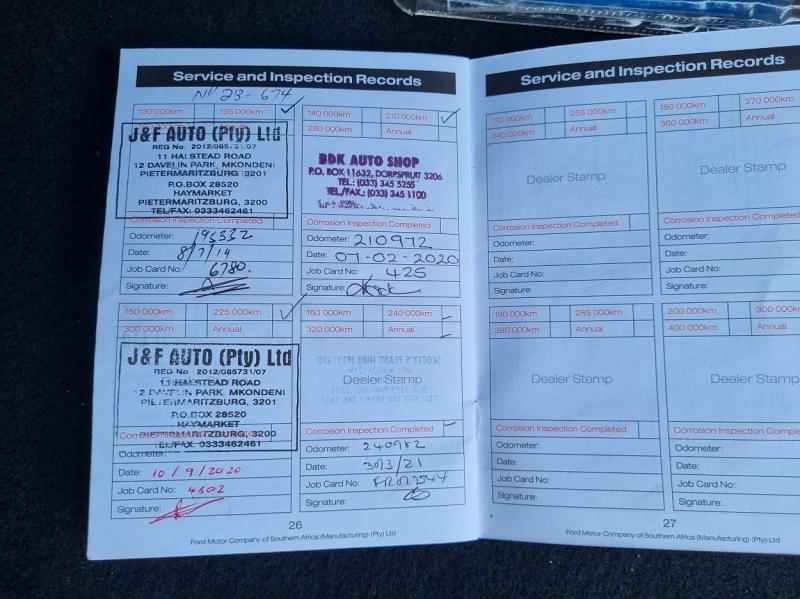 Service and Inspection Records
NV 23-674
130 000km 195 000km
J&F AUTO (Pty) Ltd
REG No. 2012/085731/07
11 HALSTEAD ROAD
12 DAVELIN PARK, MKONDENI
PIETERMARITZBURG, 3201
P.O.BOX 28520
HAYMARKET
PIETERMARITZBURG, 3200
TEL/FAX: 0333462461
Corrosion Inspection Completed
Odometer: 195332
Date: 8/7/19
Job Card No: 6780.
Signature:
140 000km 210 000km
280 000km Annual
BDK AUTO SHOP
P.O. BOX 11632, DORPSPRUIT 3206
TEL.: (033) 345 5255
TEL/FAX.: (033) 345 1100
Corrosion Inspection Completed
Odometer: 210972
Date: 07-02-2020
Job Card No: 425
Signature:
150 000km 225 000km
300 000km Annual
J&F AUTO (Pty) Ltd
REG No 2012/085731/07
11 HALSTEAD ROAD
12 DAVELIN PARK, MKONDENI
PIETERMARITZBURG, 3201
P.O.BOX 28520
HAYMARKET
PIETERMARITZBURG, 3200
TEL/FAX: 0333462461
Odometer:
Date: 10/9/2020
Job Card No: 4602
Signature:
160 000km 240 000km
320 000km Annual
Dealer Stamp
Corrosion Inspection Completed
Odometer: 240982
Date: 30/3/21
Job Card No:
Signature:
26
Ford Motor Company of Southern Africa (Manufacturing) (Pty) Ltd
Service and Inspection Records
170 000km 255 000km
340 000km Annual
Dealer Stamp
Corrosion Inspection Completed
Odometer:
Date:
Job Card No:
Signature:
180 000km 270 000km
360 000km Annual
Dealer Stamp
Corrosion Inspection Completed
Odometer:
Date:
Job Card No:
Signature:
190 000km 285 000km
380 000km Annual
Dealer Stamp
Corrosion Inspection Completed
Odometer:
Date:
Job Card No:
Signature:
200 000km 300 000km
400 000km Annual
Dealer Stamp
Corrosion Inspection Completed
Odometer:
Date:
Job Card No:
Signature:
27
Ford Motor Company of Southern Africa (Manufacturing) (Pty) Ltd